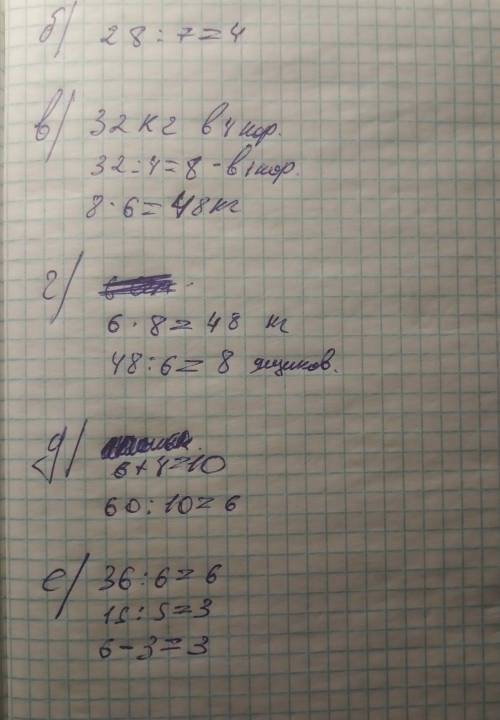 б) 28 : 7 = 4
в) 32 кг в 4 кор.
32 : 4 = 8 - в 1 кор.
8 · 6 = 48 кг
г)
6 · 8 = 48 кг
48 : 6 = 8 ящиков.
д)
6 + 4 = 10
60 : 10 = 6
е) 36 : 6 = 6
15 : 5 = 3
6 - 3 = 3